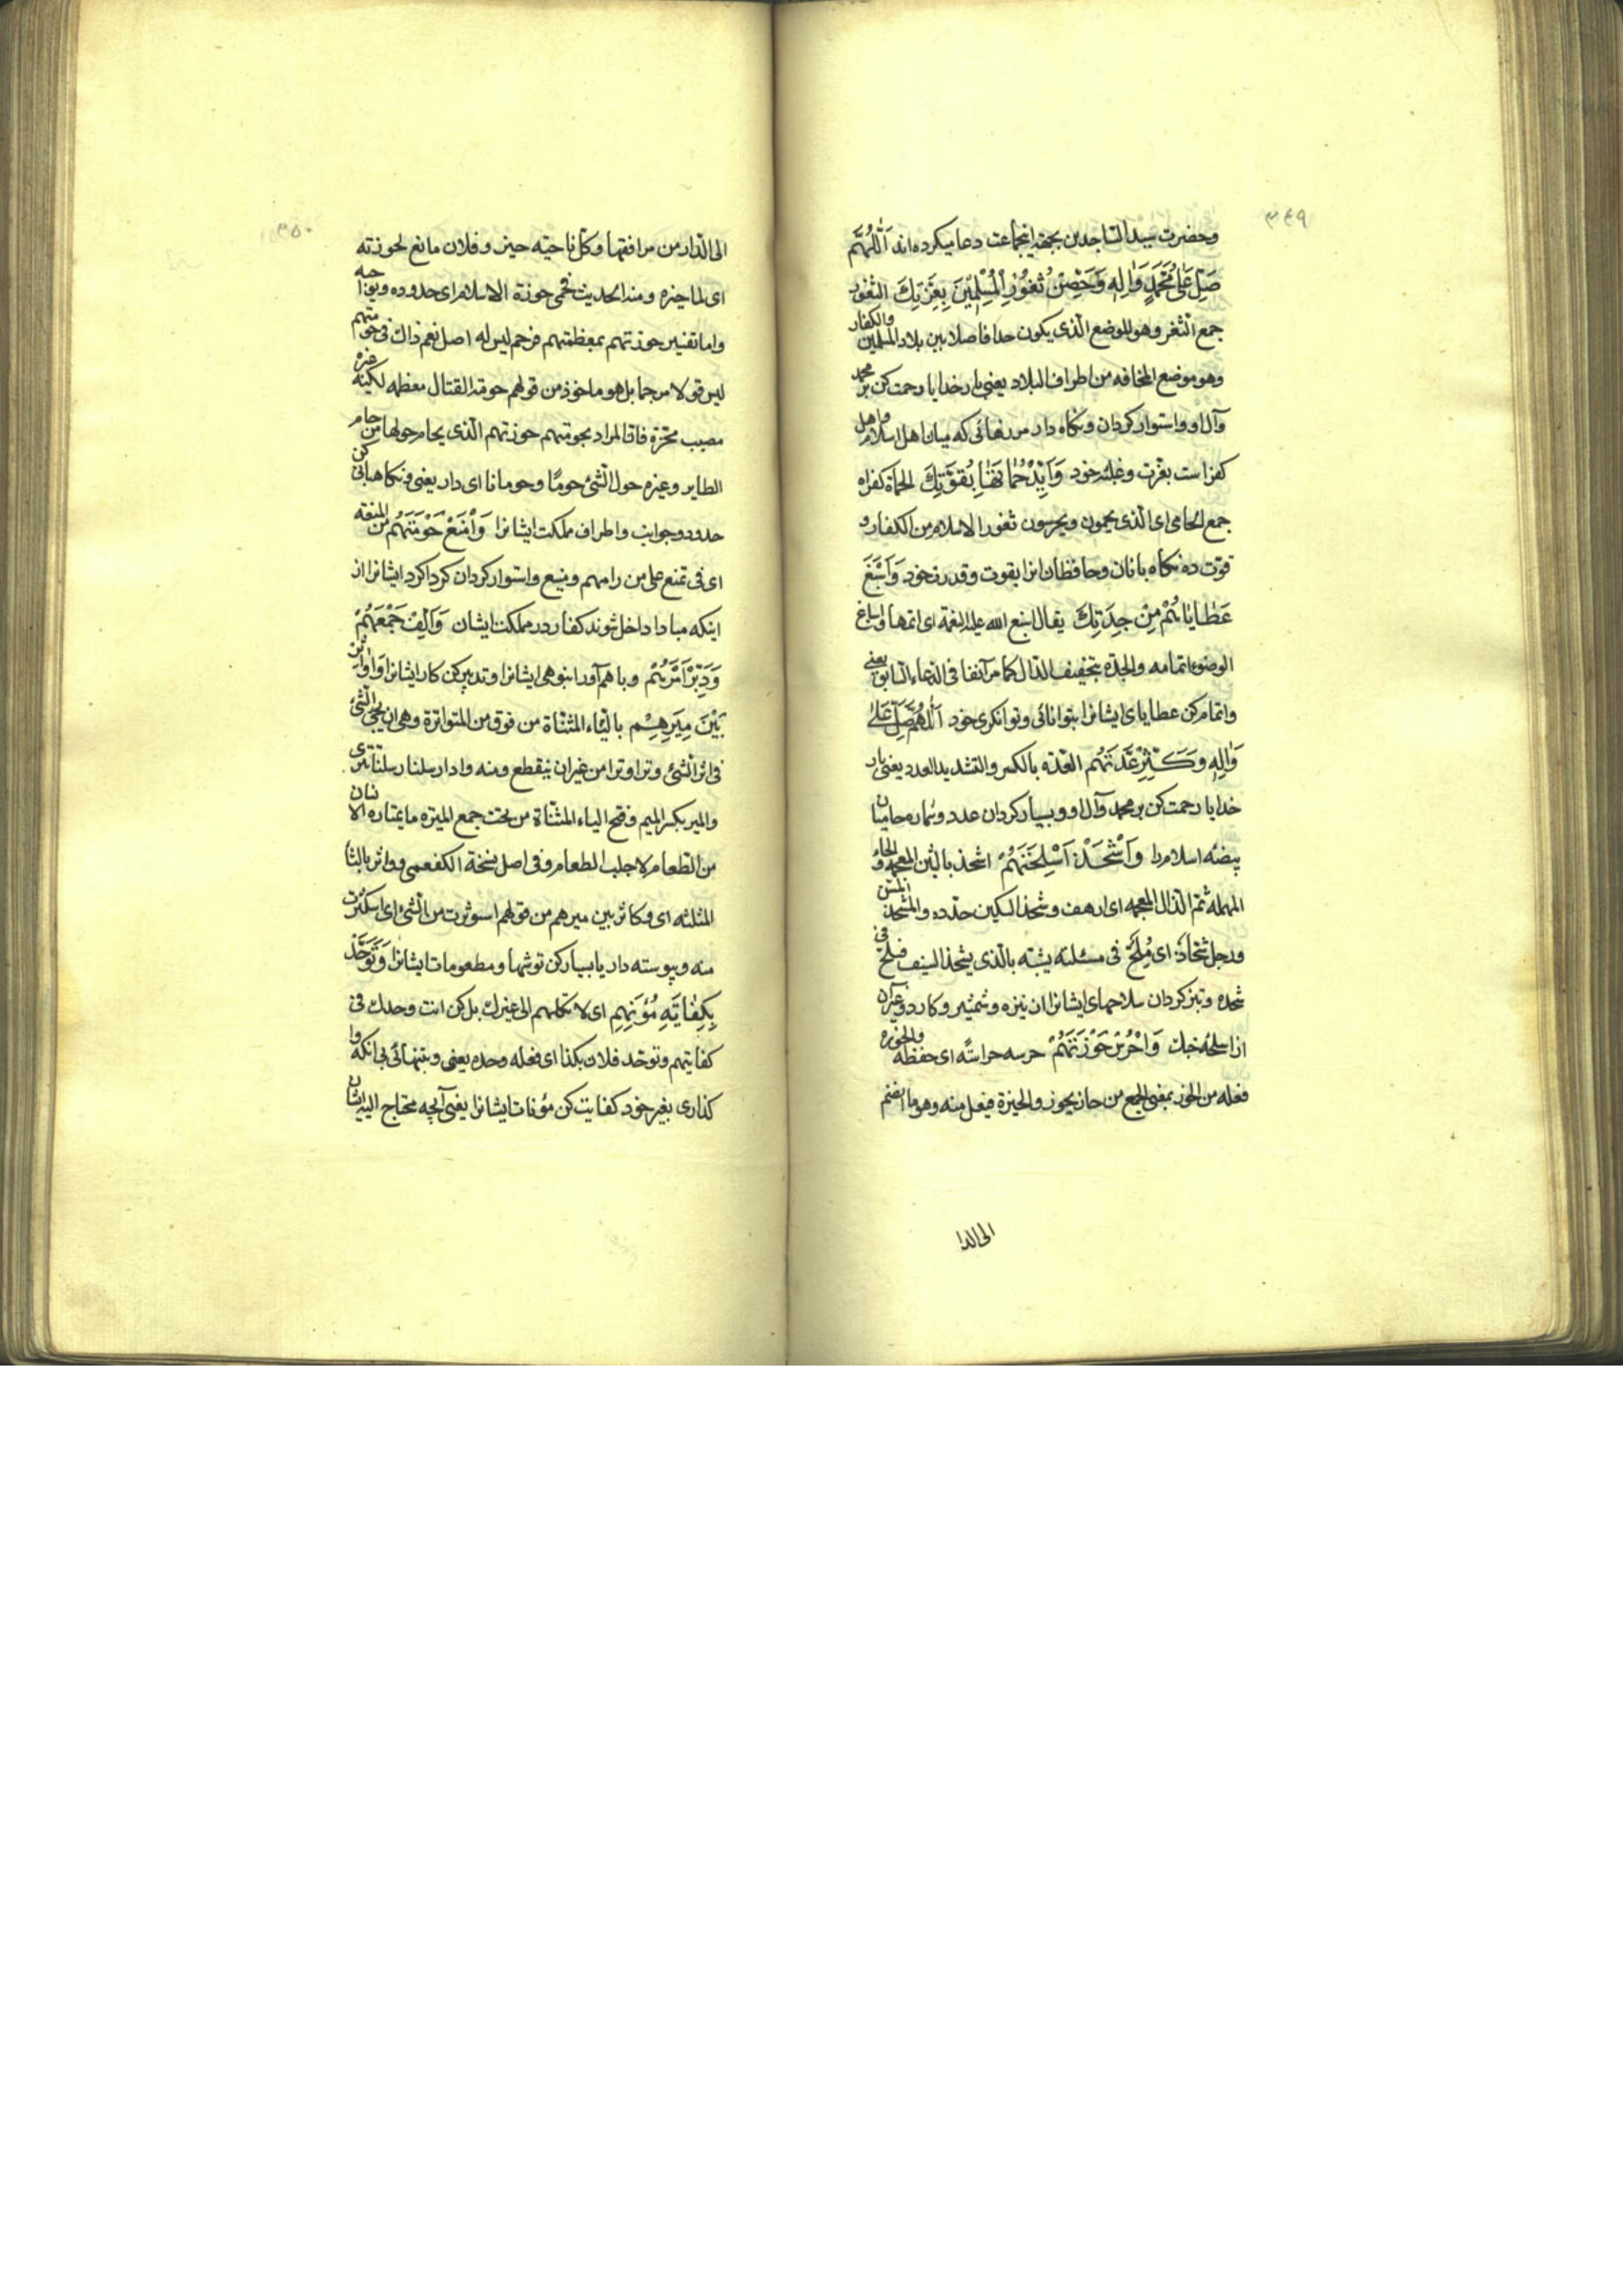 ۳۴۹
وحضرت سید الساجدین بجهة اینجماعت دعا میکرده اند اَللّٰهُمَّ
صَلِّ عَلیٰ مُحَمَّدٍ وَاٰلِهِ وَحَصِّنْ ثُغُورَ الْمُسْلِمِیْنَ بِعِزَّتِكَ الثغور
جمع الثغر وهو الموضع الذی یکون حدا فاصلا بین بلاد المسلمین والکفار
وهو موضع المخافه من اطراف البلاد یعنی بار خدایا رحمت کن بر محمد
وآل او واستوار کردان ونکاه دار مرزهائی که میان اهل اسلام واهل
کفر است بعزت وغلبه خود وَاَیِّدْ حُمَاتَهَا بِقُوَّتِكَ الحماة کقراه
جمع الحامی ای الذی یحمون ویحرسون ثغور الاسلام من الکفار و
قوت ده نکاه بانان وحافظان انرا بقوت وقدرت خود وَاَسْبِغْ
عَطَایَاهُمْ مِنْ جِدَتِكَ یقال اسبغ الله علیه النعمة ای اتمها واسباغ
الوضوء اتمامه والجدة بتخفیف الدال کما مر آنفا فی الدعاء السابق یعنی
واتمام کن عطایای ایشانرا بتوانائی وتوانکری خود اَللّٰهُمَّ صَلِّ عَلیٰ
وَاٰلِهِ وَکَثِّرْ عِدَّتَهُم العدة بالکسر والتشدید العدد یعنی بار
خدایا رحمت کن بر محمد وآل او وبسیار کردان عدد وشماره حامیان
بیضه اسلام را وَاشْحَذْ اَسْلِحَتَهُمْ اشحذ بالشین المعجمه والحاء
المهمله ثم الذال المعجمه ای ارهف وشحذ السکین حدده والمشحذ المسن
ورجل شحاذ ای مُلِحّ فی مسئلته یشبه بالذی یشحذ السیف فیلح فی
شحذه وتیز کردان سلاحهای ایشانرا از نیزه وشمشیر وکارد وغیر آن
از اسلحه جنك وَاحْرُسْ حَوْزَتَهُمْ حرسه حراسة ای حفظه والحوزه
فعله من الحوز بمعنی الجمع من حاز یحوز والحیزة فیعل منه وهو ما انضم
الی الدار
۳۵۰
الی الدار من مرافقها وکل ناحیته حیز وفلان مانع لحوزته
ای لما حیزه ومنه الحدیث فحمی حوزة الاسلام ای حدوده ونواحیه
واما تفسیر حوزتهم بمعظمتهم فزعم لیس له اصل نعم ذاك فی حومتهم
لیس قولا مرجما بل هو ماخوذ من قولهم حومة القتال معظمه لکنه غیر
مصیب محزه فان المراد بحومتهم حوزتهم الذی یحام حولها من حام
الطایر وغیره حول الشئ حومًا وحومانا ای دار یعنی ونکاهبانی کن
حدود وجوانب واطراف مملکت ایشانرا وَاَمْنِعْ حَوْمَتَهُمْ من المنعه
ای فی تمنع علی من رامهم ومنیع واستوار کردان کرداکرد ایشانرا از
اینکه مبادا داخل شوند کفار در مملکت ایشان وَاَلِّفْ جَمْعَهُمْ
وَدَبِّرْ اَمْرَهُمْ وباهم آور انبوهی ایشانرا وتدبیر کن کار ایشانرا وَوَاتِرْ
بَیْنَ مِیَرِهِمْ بالتاء المثناة من فوق من المتواترة وهی ان یجئ الشئ
فی اثر الشئ وترا وترا من غیر ان ینقطع ومنه وادار سلنا رسلنا تتری
والمیر بکسر المیم وفتح الیاء المثناة من تحت جمع المیزه ما یمتاره الانسان
من الطعام لاجلب الطعام وفی اصل نسخة الکفعمی وواثر بالثاء
المثلثه ای وکاثر بین میرهم من قولهم استوثرت من الشئ ای استکثرت
منه وپیوسته دار یا بسیار کن توشها ومطعومات ایشانرا وَتَوَحَّدْ
بِکِفَایَةِ مُؤَنِهِمْ ای لا تکلهم الی غیرك بل کن انت وحدك فی
کفایتهم وتوحد فلان بکذا ای فعله وحده یعنی وبتنهائی بی آنکه وا
کذاری بغیر خود کفایت کن مؤنات ایشانرا یعنی آنچه محتاج الیه ایشان